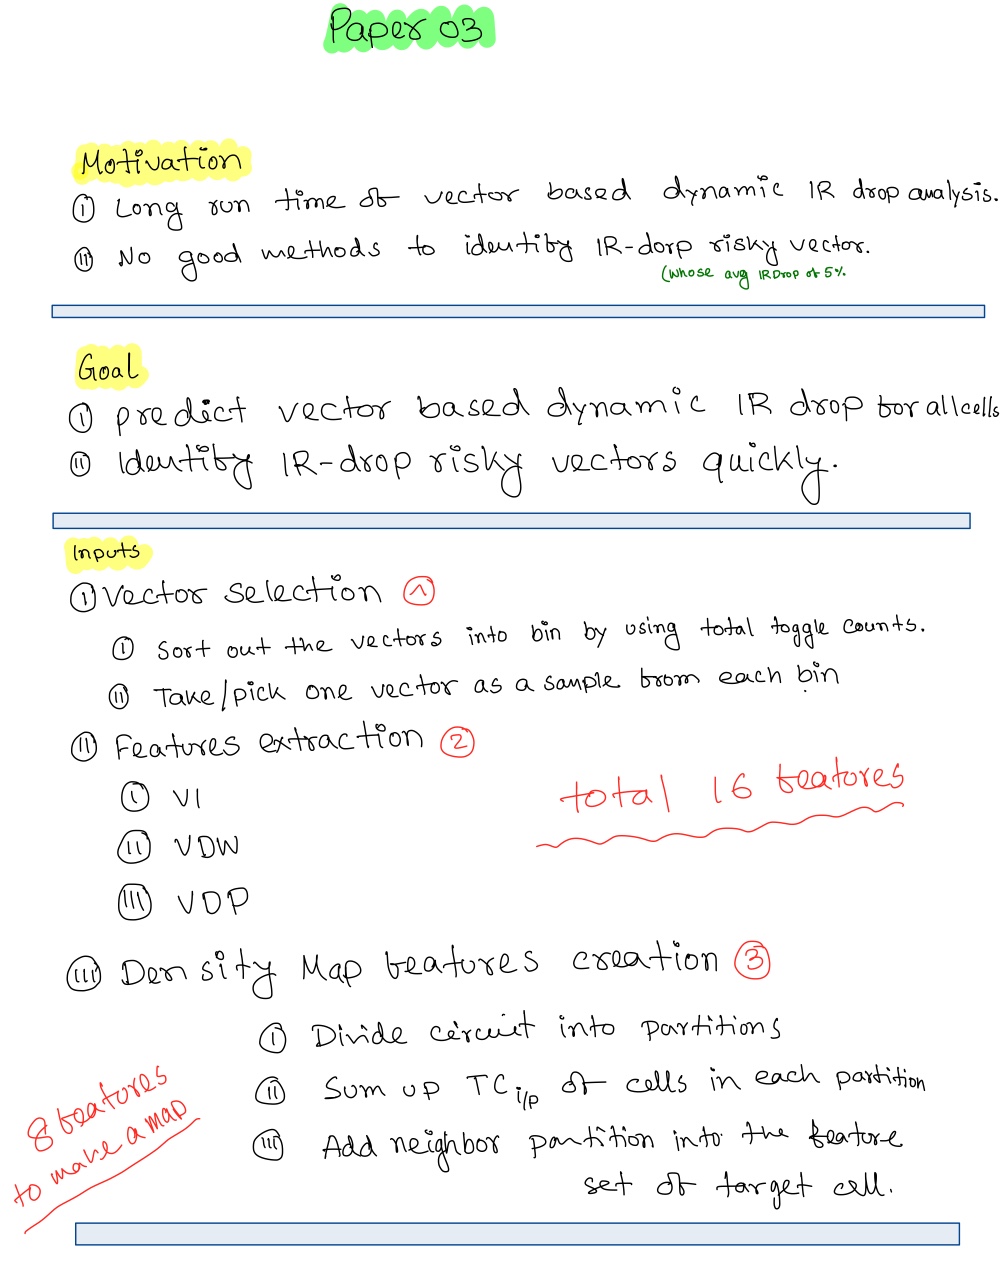 Paper 03
Motivation
(i) Long run time of vector based dynamic IR drop analysis.
(ii) No good methods to identify IR-dorp risky vector.
(whose avg IRDrop of 5%
Goal
(i) predict vector based dynamic IR drop for all cells
(ii) Identify IR-drop risky vectors quickly.
Inputs
(i) Vector selection (1)
(i) Sort out the vectors into bin by using total toggle counts.
(ii) Take/pick one vector as a sample from each bin
(ii) Features extraction (2)
(i) VI
total 16 features
(ii) VDW
(iii) VDP
(iii) Density Map features creation (3)
(i) Divide circuit into partitions
(ii) Sum up TC i/p of cells in each partition
(iii) Add neighbor partition into the feature
set of target cell.
8 features
to make a map